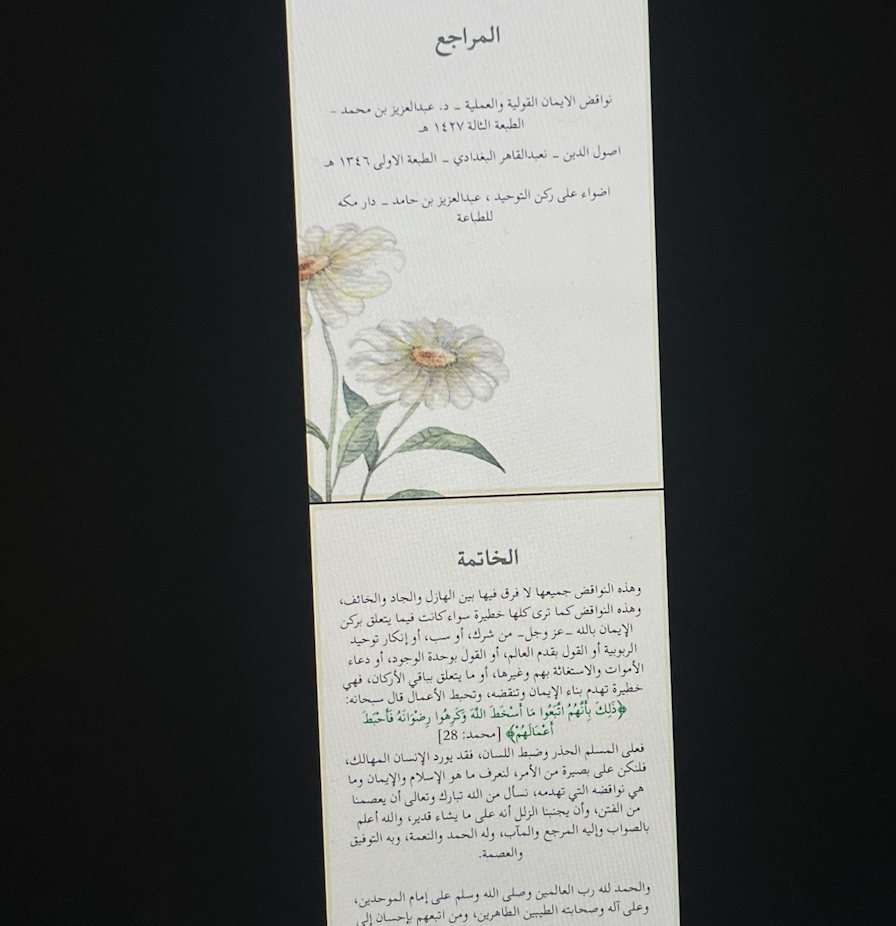 المراجع
نواقض الايمان القولية والعملية – د. عبدالعزيز بن محمد –
الطبعة الثالة ١٤٢٧ هـ
اصول الدين – نعبدالقاهر البغدادي – الطبعة الاولى ١٣٤٦ هـ
اضواء على ركن التوحيد ، عبدالعزيز بن حامد – دار مكه
للطباعة
الخاتمة
وهذه النواقض جميعها لا فرق فيها بين الهازل والجاد والخائف،
وهذه النواقض كما ترى كلها خطيرة سواء كانت فيما يتعلق بركن
الإيمان بالله –عز وجل– من شرك، أو سب، أو إنكار توحيد
الربوبية أو القول بقدم العالم، أو القول بوحدة الوجود، أو دعاء
الأموات والاستغاثة بهم وغيرها، أو ما يتعلق بباقي الأركان، فهي
خطيرة تهدم بناء الإيمان وتنقضه، وتحبط الأعمال قال سبحانه:
﴿ذَلِكَ بِأَنَّهُمُ اتَّبَعُوا مَا أَسْخَطَ اللَّهَ وَكَرِهُوا رِضْوَانَهُ فَأَحْبَطَ
أَعْمَالَهُمْ﴾ [محمد: 28]
فعلى المسلم الحذر وضبط اللسان، فقد يورد الإنسان المهالك،
فلنكن على بصيرة من الأمر، لنعرف ما هو الإسلام والإيمان وما
هي نواقضه التي تهدمه، نسأل من الله تبارك وتعالى أن يعصمنا
من الفتن، وأن يجنبنا الزلل أنه على ما يشاء قدير، والله أعلم
بالصواب وإليه المرجع والمآب، وله الحمد والنعمة، وبه التوفيق
والعصمة.
والحمد لله رب العالمين وصلى الله وسلم على إمام الموحدين،
وعلى آله وصحابته الطيبين الطاهرين، ومن اتبعهم بإحسان إلى